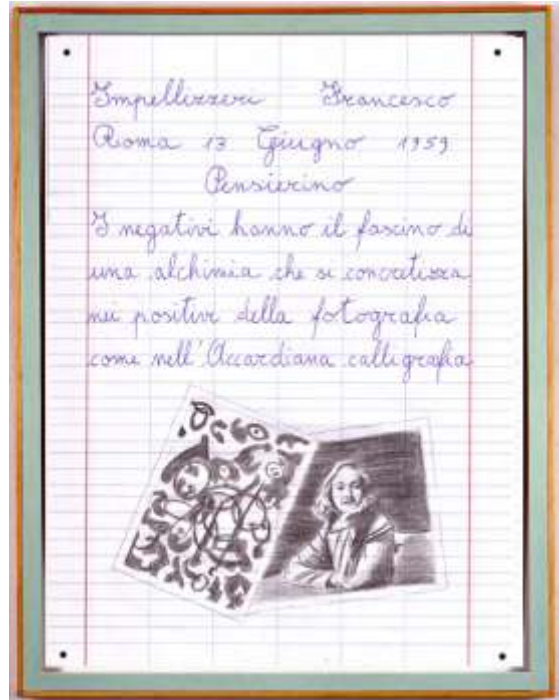 Impellizzeri Francesco
Roma 13 Giugno 1959
Pensierino
I negativi hanno il fascino di
una alchimia che si concretizza
nei positivi della fotografia
come nell'Accardiana calligrafia